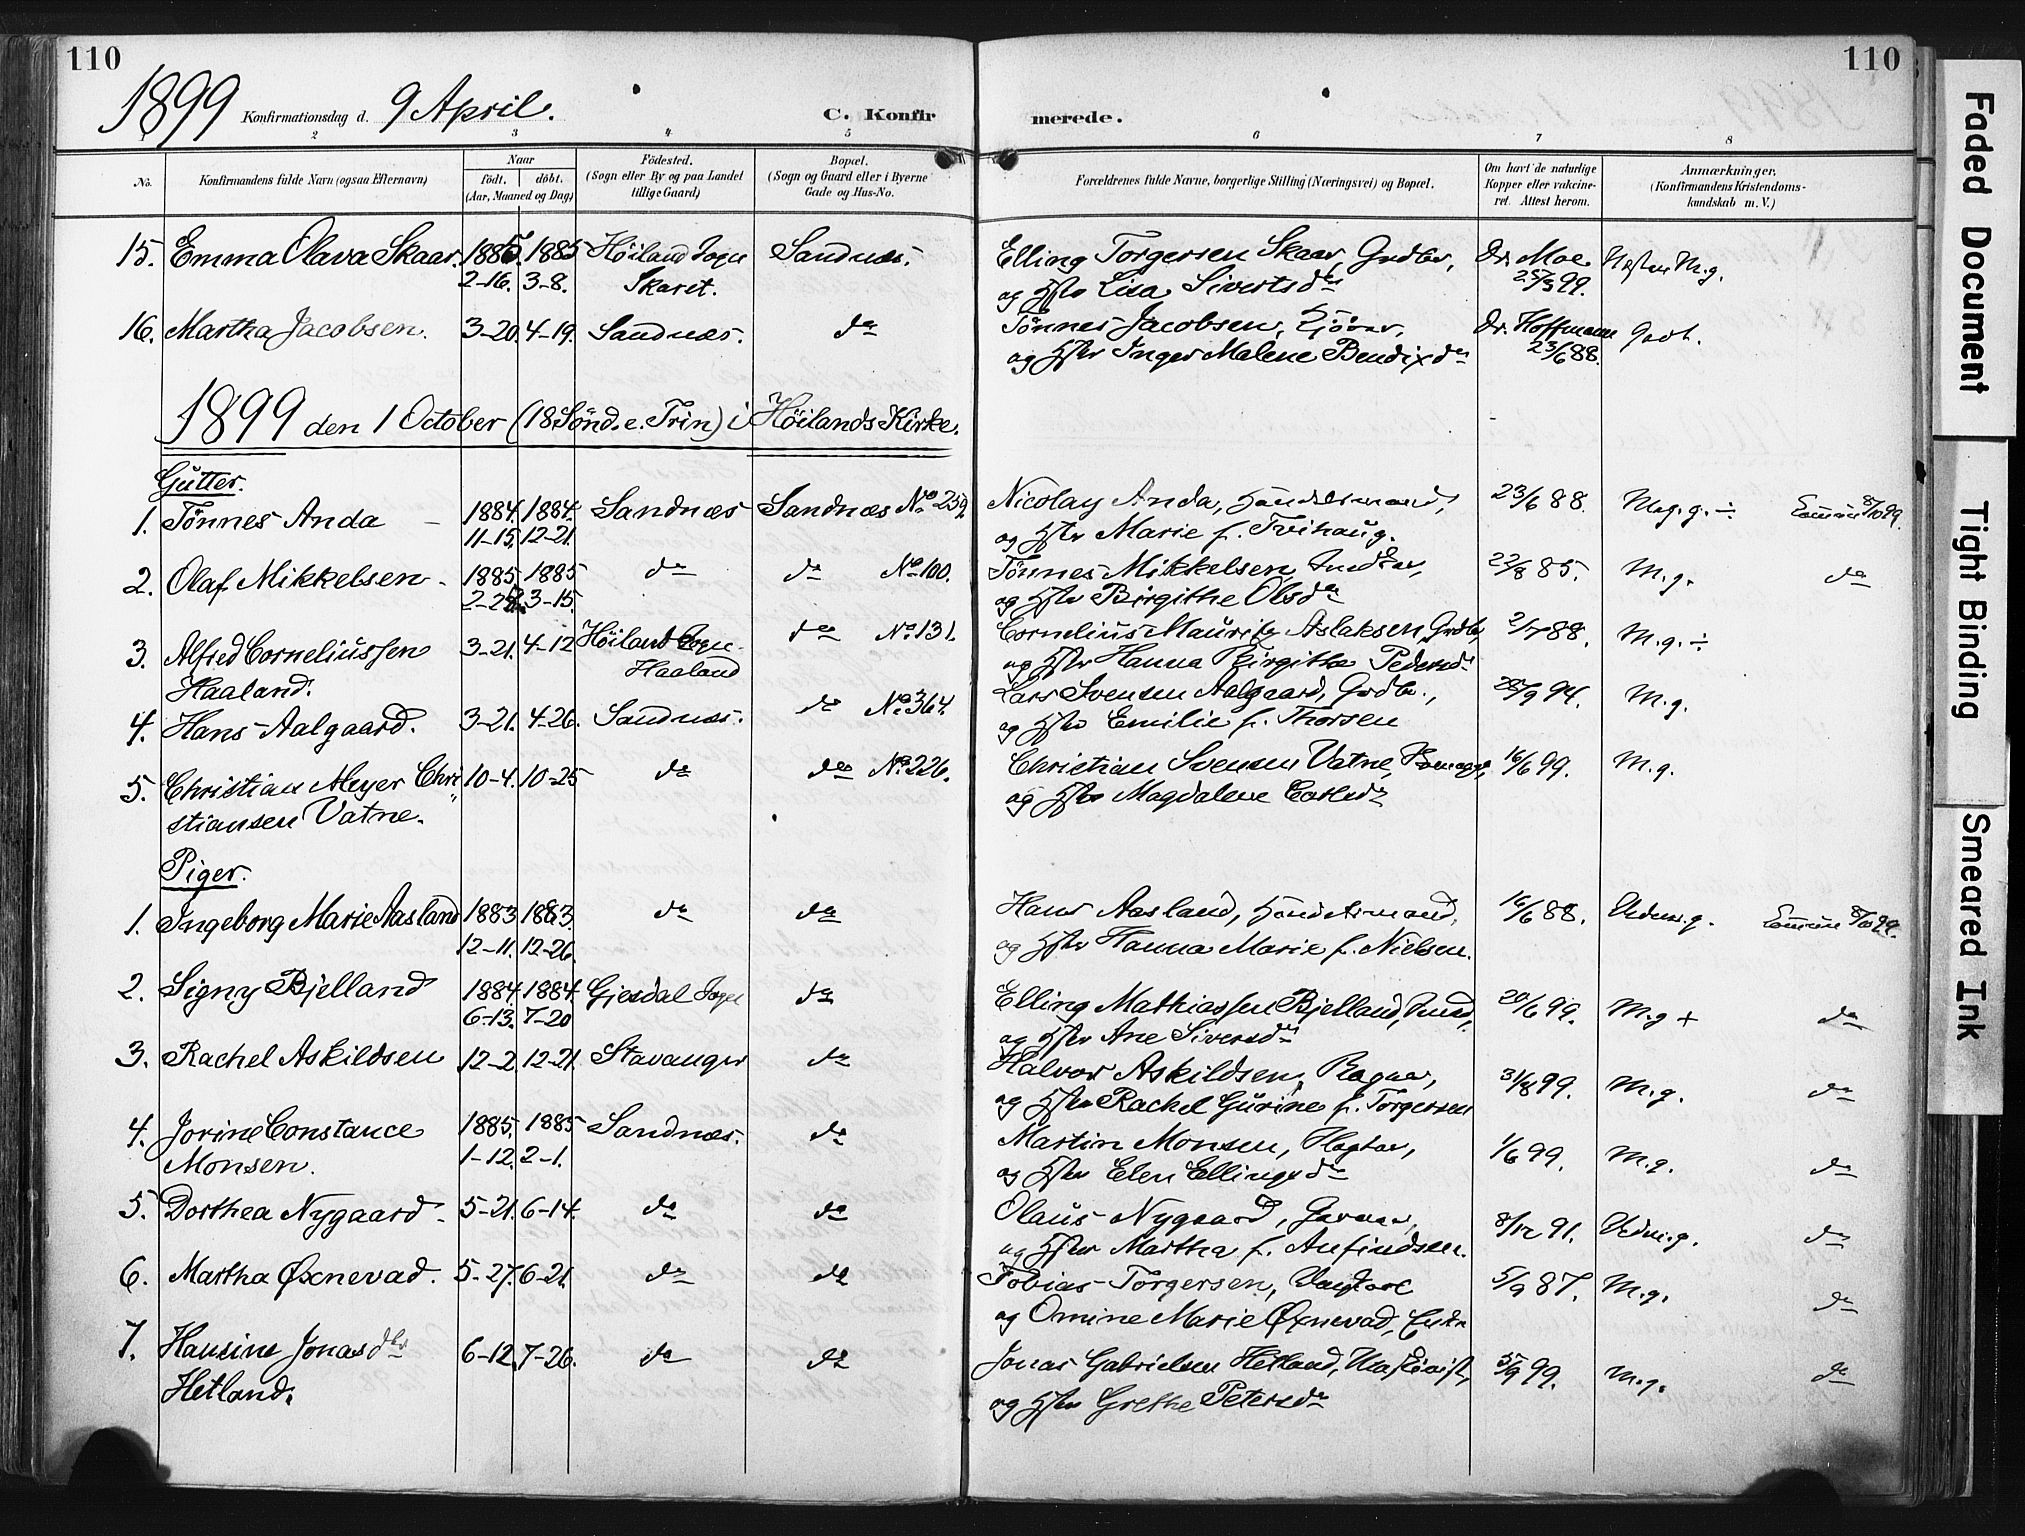 110
110
1899 Konfirmationsdag d. 9 April. C. Konfirmerede.
1 2 3 4 5 6 7 8
No.
Konfirmandens fulde Navn (ogsaa Efternavn)
Naar
födt. döbt.
(Aar, Maaned og Dag)
Födested.
(Sogn eller By og paa Landet
tillige Gaard)
Bopæl.
(Sogn og Gaard eller i Byerne
Gade og Hus-No.
Forældrenes fulde Navne, borgerlige Stilling (Næringsvei) og Bopæl.
Om havt de naturlige
Kopper eller vakcine-
ret. Attest herom.
Anmærkninger,
(Konfirmandens Kristendoms-
kundskab m. V.)
15. Emma Olava Skaar. 1885. 1885 Höiland Sogn Sandnæs. Elling Torgersen Skaar, Grdbr, Dr. Moe M.g.
2-16. 3-8. Skaret. og Hstr Lisa Sivertsdtr 25/3 99.
16. Martha Jacobsen. 3-20. 4-19. Sandnæs. do Tönnes Jacobsen, Dr. Hoffmann Godt.
og Hstr Inger Malene Bendixdtr 23/6 88.
1899 den 1 October (18 Sönd. e. Trin) i Höilands Kirke.
Gutter.
1. Tönnes Anda 1884. 1884. Sandnæs Sandnæs No 259. Nicolay Anda, Handelsmand, 23/6 88. Meg. g. ÷ 8/10 99.
11-15. 12-21. og Hstr Marie f. Tvihaug.
2. Olaf Mikkelsen 1885 1885 do do No 100. Tönnes Mikkelsen 22/8 85. M.g. do
3-15. og Hstr Birgithe Olsdtr
3. Alfred Corneliussen 3-21. 4-12 Höiland Sogn do No 131. Cornelius Mauritz Aslaksen, Grdbr, 2/7 88. M.g. ÷
Haaland. Haaland og Hstr Hanna Birgithe Pedersdtr
4. Hans Aalgaard. 3-21. 4-26. Sandnæs. do No 364. Lars Svensen Aalgaard, Grdbr., 28/9 94. M.g.
og Hstr Emilie f. Thorsen
5. Christian Meyer Chri 10-4. 10-25 do do No 226. Christian Svensen Vatne, 16/6 99. M.g.
stiansen Vatne. og Hstr Magdalene
Piger.
1. Ingeborg Marie Aasland 1883 1883. do do Hans Aasland, Handelsmand, 16/6 88. Udm.g. 8/10 99.
12-11. 12-26. og Hstr Hanna Marie f. Nielsen.
2. Signy Bjelland 1884 1884 Gjesdal Sogn do Elling Mathiassen Bjelland, 20/6 99. M.g + do
6-13. 7-20 og Hstr Ane Siversdtr
3. Rachel Askildsen 12-2. 12-21. Stavanger do Halvor Askildsen, Bager, 31/8 99. M.g. do
og Hstr Rachel Gurine f. Torgersen
4. Jorine Constance 1885. 1885 Sandnæs. do Martin Monsen, 1/6 99. M.g. do
Monsen. 1-12. 2-1. og Hstr Elen Ellingsdtr
5. Dorthea Nygaard 5-21. 6-14. do do Olaus Nygaard, Garver, 8/12 91. Udm.g. do
og Hstr Martha f. Anfindsen.
6. Martha Øxnevad. 5-27. 6-21. do do Tobias Torgersen, 5/9 87. M.g. do
og Omine Marie Øxnevad, Enke
7. Hansine Jonasdtr 6-12. 7-26. do do Jonas Gabrielsen Hetland, 5/9 99. M.g. do
Hetland. og Hstr Grethe Petersdtr
Faded Document
Tight Binding
Smeared Ink